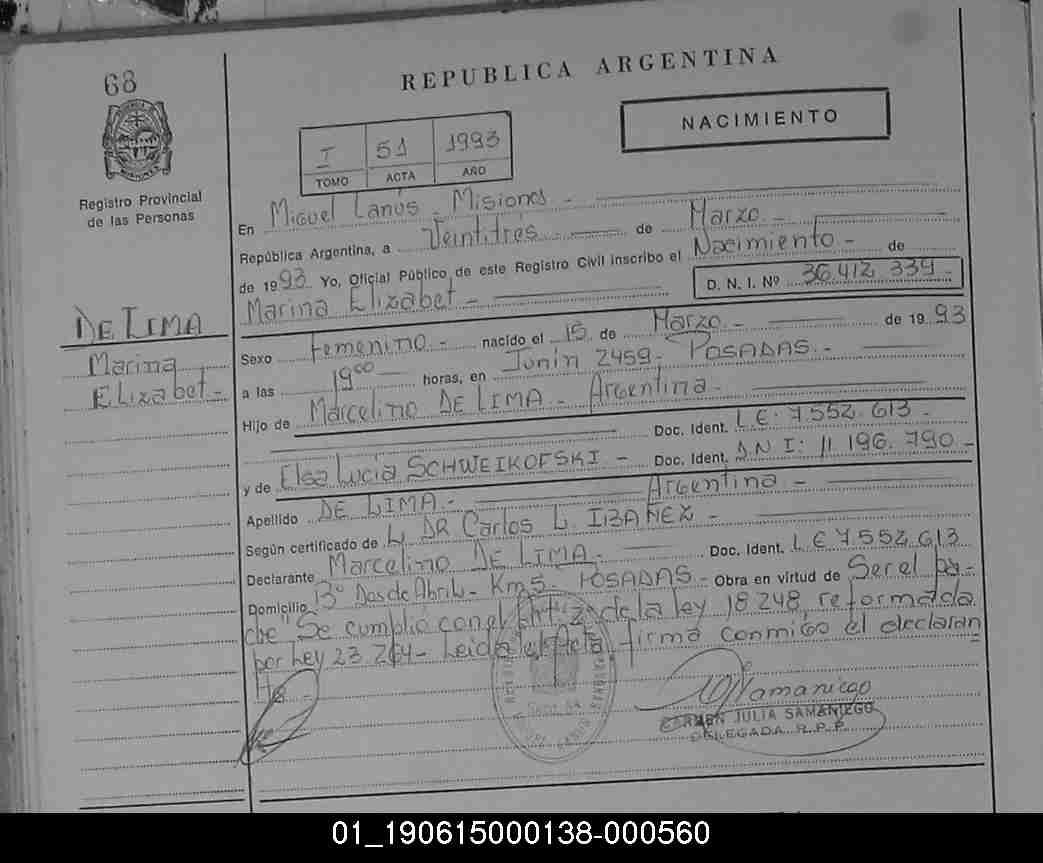 68
REPUBLICA ARGENTINA
NACIMIENTO
I 51 1993
TOMO ACTA AÑO
Registro Provincial
de las Personas
En Miguel Lanús - Misiones -
República Argentina, a Veintitrés de Marzo -
de 1993 Yo, Oficial Público de este Registro Civil inscribo el Nacimiento - de
Marina Elizabet - D. N. I. Nº 36.412.339 -
DE LIMA
Marina
Elizabet -
Sexo Femenino - nacido el 15 de Marzo - de 1993
a las 19⁰⁰ horas, en Junín 2459 - POSADAS. -
Hijo de Marcelino DE LIMA - Argentina -
Doc. Ident. L E. 7.552.613 -
y de Elsa Lucia SCHWEIKOFSKI - Doc. Ident. D N I: 11 196.790 -
Apellido DE LIMA - Argentina -
Según certificado de DR Carlos L. IBAÑEZ -
Declarante Marcelino DE LIMA - Doc. Ident. L E 7.552.613
Domicilio Bº Dos de Abril - Km 5 - POSADAS - Obra en virtud de Ser el pa-
dre" Se cumplió con el Art. 2 de la Ley 18 248, reformada
por Ley 23 264 - Leida el Acta, firma conmigo el declaran
te -
CARMEN JULIA SAMANIEGO
DELEGADA R. P. P.
01_190615000138-000560